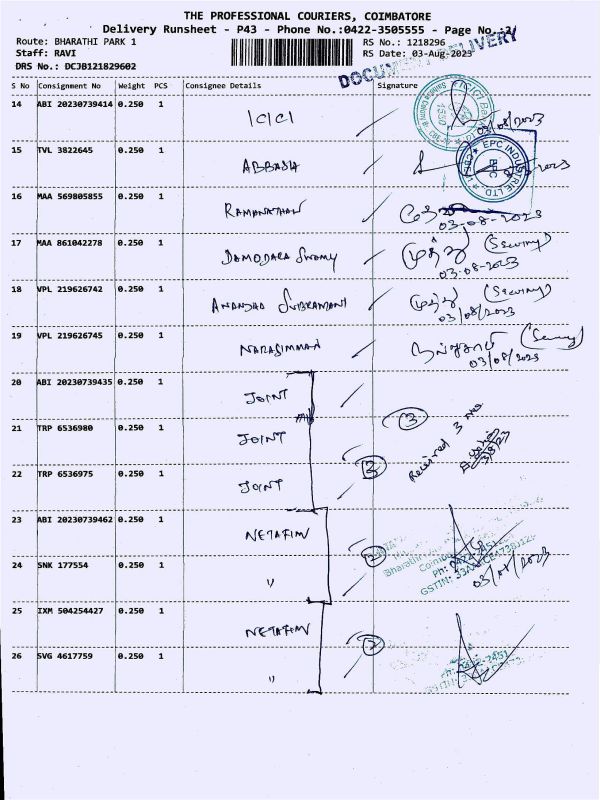 THE PROFESSIONAL COURIERS, COIMBATORE
Delivery Runsheet - P43 - Phone No.:0422-3505555 - Page No.:2/
Route: BHARATHI PARK 1 RS No.: 1218296
Staff: RAVI RS Date: 03-Aug-2023
DRS No.: DCJB121829602
DOCUMENT DELIVERY
S No Consignment No Weight PCS Consignee Details Signature
14 ABI 20230739414 0.250 1 ICICI 03/08/2023
15 TVL 3822645 0.250 1 ABBASA
EPC INDUSTRIE LTD.
16 MAA 569805855 0.250 1 RAMANATHAN
03-08-2023
17 MAA 861042278 0.250 1 DAMODARA SWAMY முத்து (Security)
03-08-2023
18 VPL 219626742 0.250 1 ANANDHA SUBRAMANI முத்து (Security)
03/08/2023
19 VPL 219626745 0.250 1 NARASIMMAN
03/08/2023
20 ABI 20230739435 0.250 1 JOINT
21 TRP 6536980 0.250 1 JOINT 3 Received 3 nos
22 TRP 6536975 0.250 1 JOINT 3
23 ABI 20230739462 0.250 1 NETAFIM
24 SNK 177554 0.250 1 " 2
03/08/2023
25 IXM 504254427 0.250 1 NETAFIM
26 SVG 4617759 0.250 1 " 2